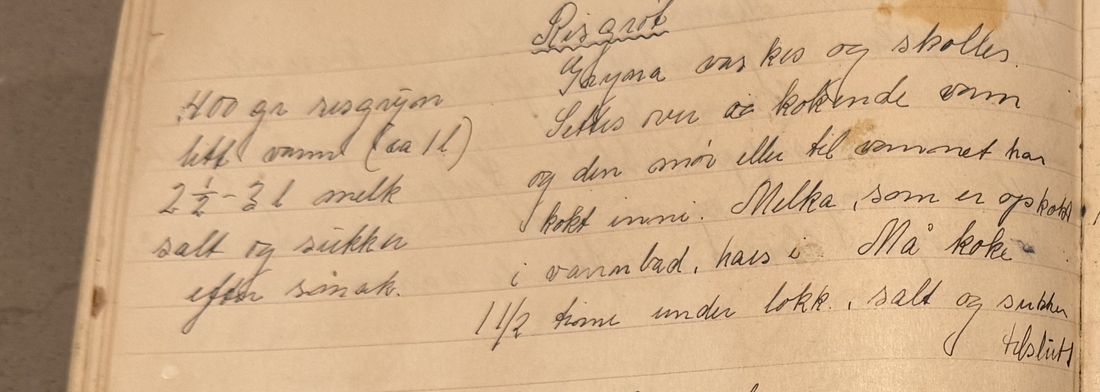 Risgrøt
400 gr risgryn
litt vann (ca 1 l)
2 ½ - 3 l melk
salt og sukker
efter smak.
Gryna vaskes og skolles.
Settes over i kokende vann
og den mør eller til vannet har
kokt inni. Melka, som er opkokt
i vannbad, haes i Må koke
1 1/2 time under lokk., salt og sukker
tilslutt